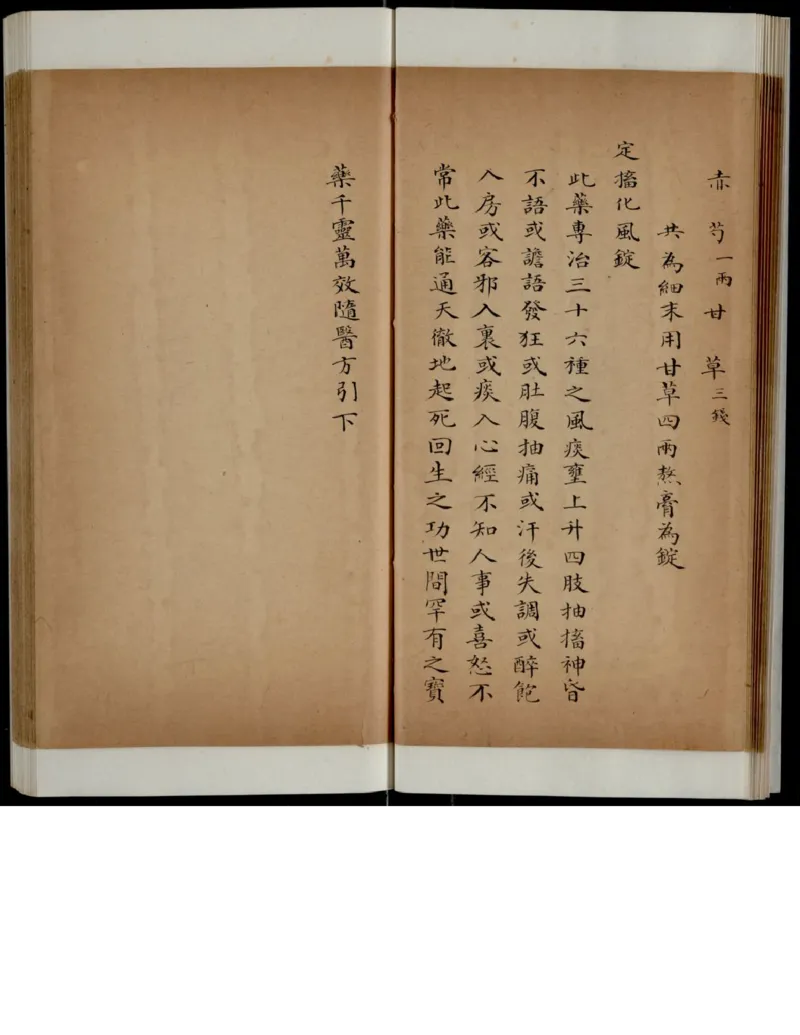 赤芍一兩甘草三錢
共為細末用甘草四兩熬膏為錠
定搐化風錠
此藥専治三十六種之風痰壅上升四肢抽搐神昏
不語或譫語發狂或肚腹抽痛或汗後失調或醉飽
入房或客邪入裏或痰入心經不知人事或喜怒不
常此藥能通天徹地起死回生之功世間罕有之寶
藥千靈萬效隨醫方引下